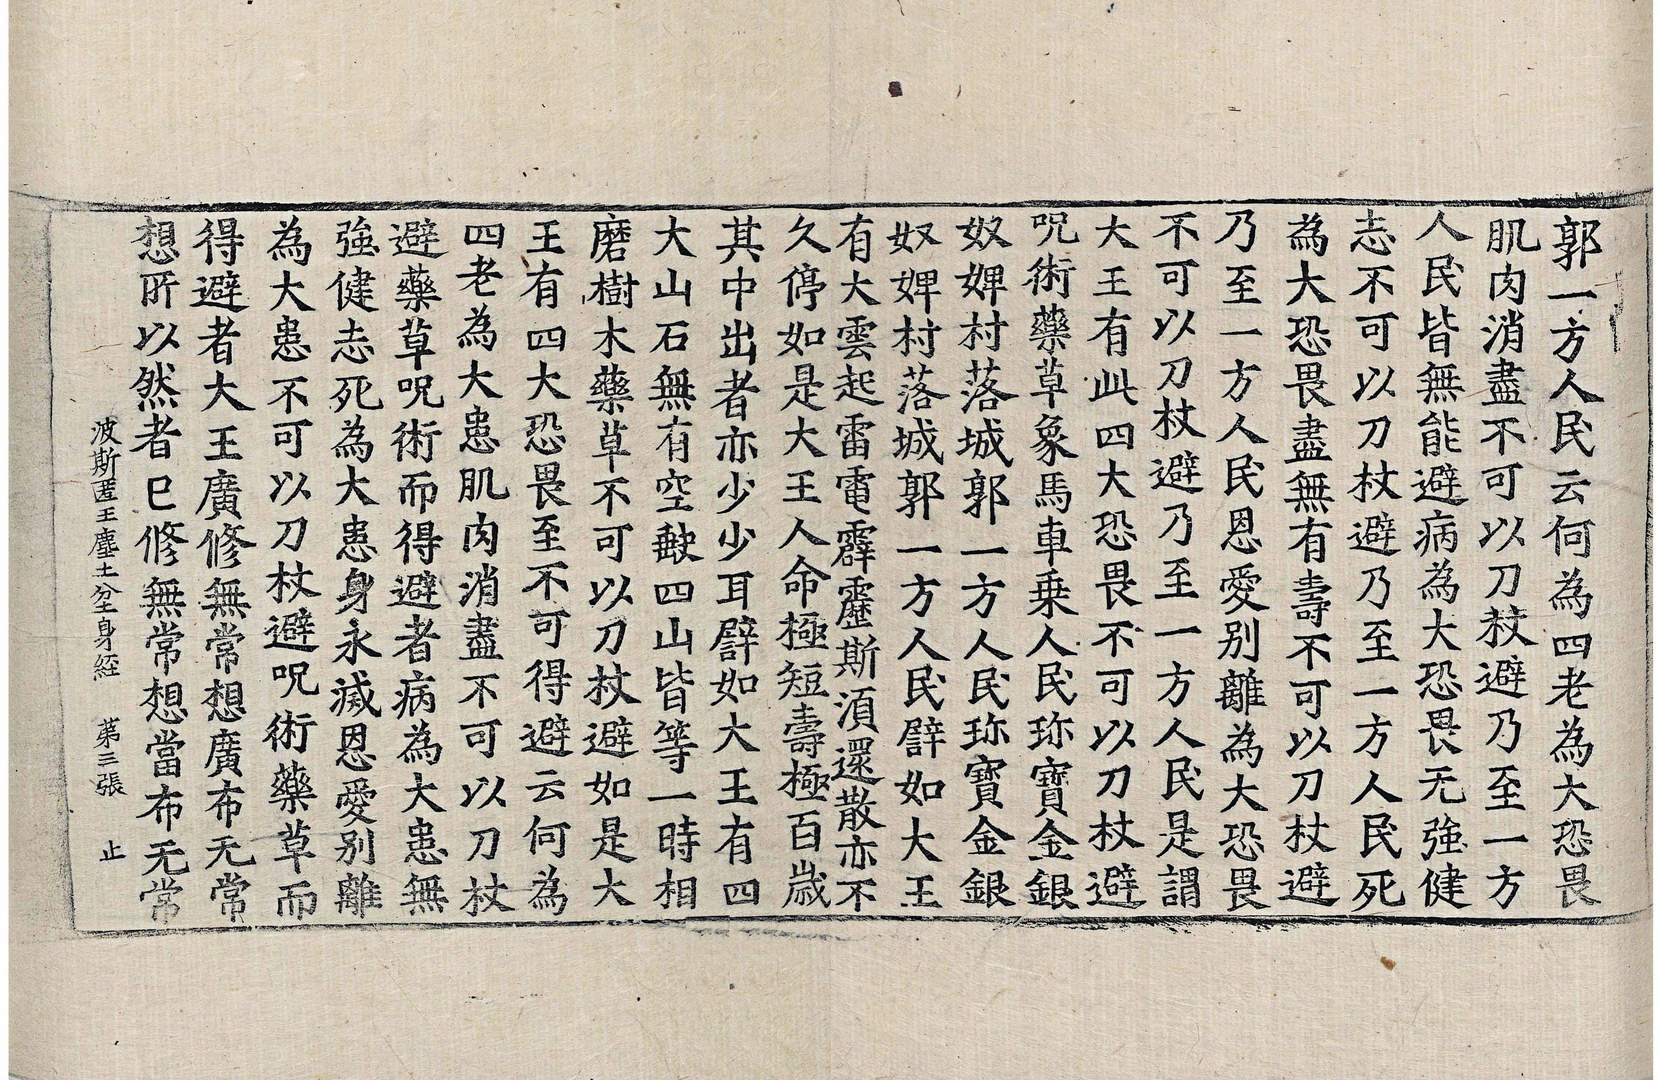 郭一方人民云何為四老為大恐畏
肌肉消盡不可以刀杖避乃至一方
人民皆無能避病為大恐畏无強健
志不可以刀杖避乃至一方人民死
為大恐畏盡無有壽不可以刀杖避
乃至一方人民恩愛別離為大恐畏
不可以刀杖避乃至一方人民是謂
大王有此四大恐畏不可以刀杖避
呪術藥草象馬車乗人民珎寶金銀
奴婢村落城郭一方人民珎寶金銀
奴婢村落城郭一方人民譬如大王
有大雲起雷電霹靂斯湏還散亦不
久停如是大王人命極短壽極百歲
其中出者亦少少耳譬如大王有四
大山石無有空缺四山皆等一時相
磨樹木藥草不可以刀杖避如是大
王有四大恐畏至不可得避云何為
四老為大患肌肉消盡不可以刀杖
避藥草呪術而得避者病為大患無
強健志死為大患身永滅恩愛別離
為大患不可以刀杖避呪術藥草而
得避者大王廣修無常想廣布无常
想所以然者已修無常想當布无常
波斯匿王塵土坌身經 第三張 止